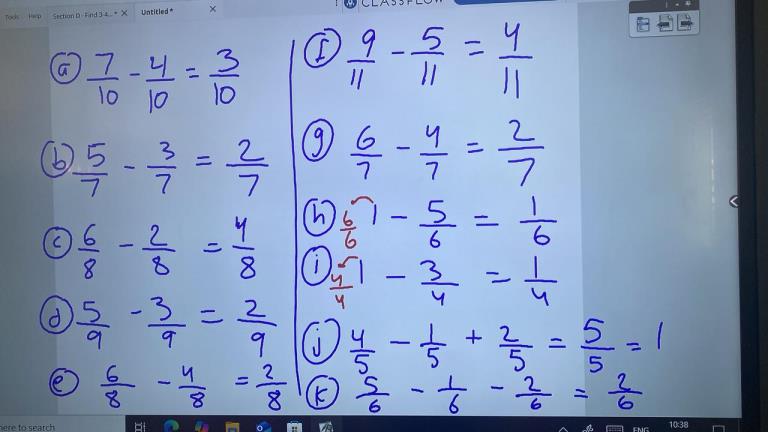 Tools Help Section D - Find 3-4... * × Untitled * × CLASSFLOW
(a) 7/10 - 4/10 = 3/10
(b) 5/7 - 3/7 = 2/7
(c) 6/8 - 2/8 = 4/8
(d) 5/9 - 3/9 = 2/9
(e) 6/8 - 4/8 = 2/8
(f) 9/11 - 5/11 = 4/11
(g) 6/7 - 4/7 = 2/7
(h) 6/6 1 - 5/6 = 1/6
(i) 4/4 1 - 3/4 = 1/4
(j) 4/5 - 1/5 + 2/5 = 5/5 = 1
(k) 5/6 - 1/6 - 2/6 = 2/6
here to search ENG 10:38